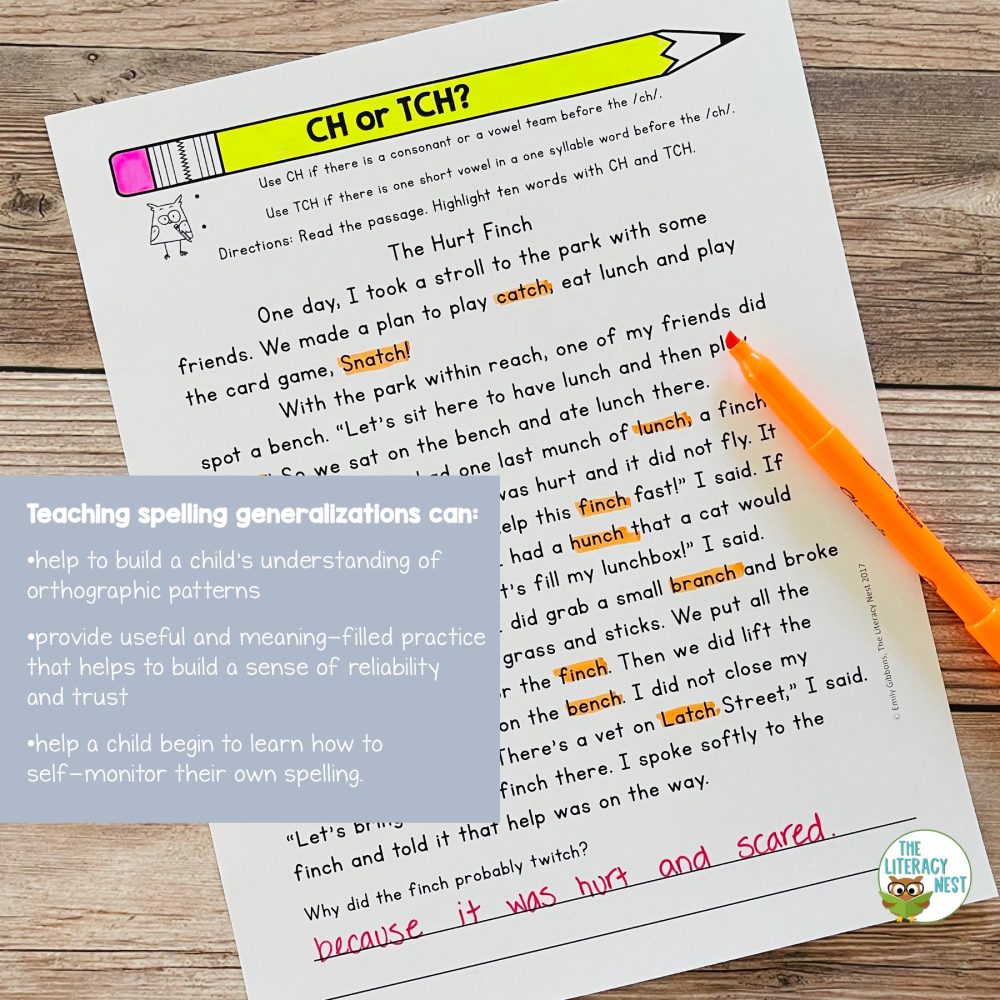 CH or TCH?
Use CH if there is a consonant or a vowel team before the /ch/.
Use TCH if there is one short vowel in a one syllable word before the /ch/.
Directions: Read the passage. Highlight ten words with CH and TCH.
The Hurt Finch
One day, I took a stroll to the park with some
friends. We made a plan to play catch, eat lunch and play
the card game, Snatch!
With the park within reach, one of my friends did
spot a bench. "Let's sit here to have lunch and then play
So we sat on the bench and ate lunch there.
one last munch of lunch, a finch
was hurt and it did not fly. It
this finch fast!" I said. If
had a hunch that a cat would
fill my lunchbox!" I said.
did grab a small branch and broke
grass and sticks. We put all the
the finch. Then we did lift the
on the bench. I did not close my
There's a vet on Latch Street," I said.
"Let's finch there. I spoke softly to the
finch and told it that help was on the way.
Why did the finch probably twitch?
because it was hurt and scared.
Teaching spelling generalizations can:
•help to build a child's understanding of
orthographic patterns
•provide useful and meaning-filled practice
that helps to build a sense of reliability
and trust
•help a child begin to learn how to
self-monitor their own spelling.
© Emily Gibbons, The Literacy Nest 2017
THE
LITERACY
NEST